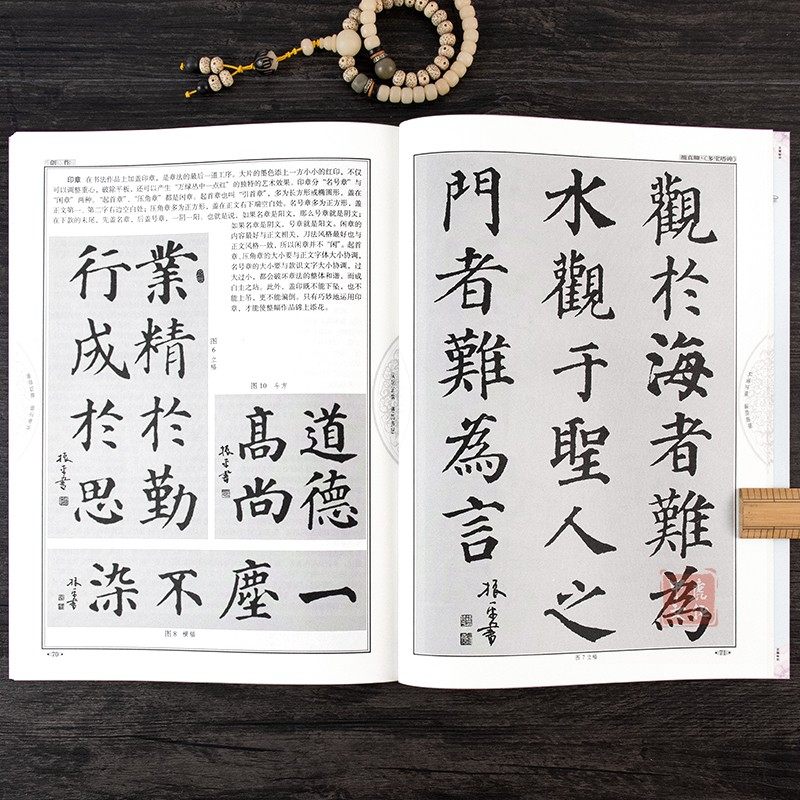 创作
印章 在书法作品上加盖印章，是章法的最后一道工序。大片的墨色添上一方小小的红印，不仅
可以调整重心，破除平板，还可以产生“万绿丛中一点红”的独特的艺术效果。印章分“名号章”与
“闲章”两种。“起首章”、“压角章”都是闲章。起首章也叫“引首章”，多为长方形或椭圆形，盖在
正文第一、第二字右边空白处；压角章多为正方形，盖在正文右下端空白处。名号章多为正方形，盖
在下款的末尾，先盖名章，后盖号章，一阴一阳。也就是说，如果名章是阳文，那么号章就是阴文；
如果名章是阴文，号章就是阳文。闲章的
内容最好与正文相关，刀法风格最好也与
正文风格一致，所以闲章并不“闲”。起首
章、压角章的大小要与正文字体大小协调，
名号章的大小要与款识文字大小协调，过
大过小，都会破坏章法的整体和谐，而成
白圭之玷。此外，盖印既不能下坠，也不
能上吊，更不能偏倒。只有巧妙地运用印
章，才能使整幅作品锦上添花。
業精於勤
行成於思
图6 立幅
图10 斗方
道德
高尚
一塵不染
图8 横幅
70
颜真卿《多宝塔碑》
觀於海者難為
水觀于聖人之
門者難為言
图7 立幅
71